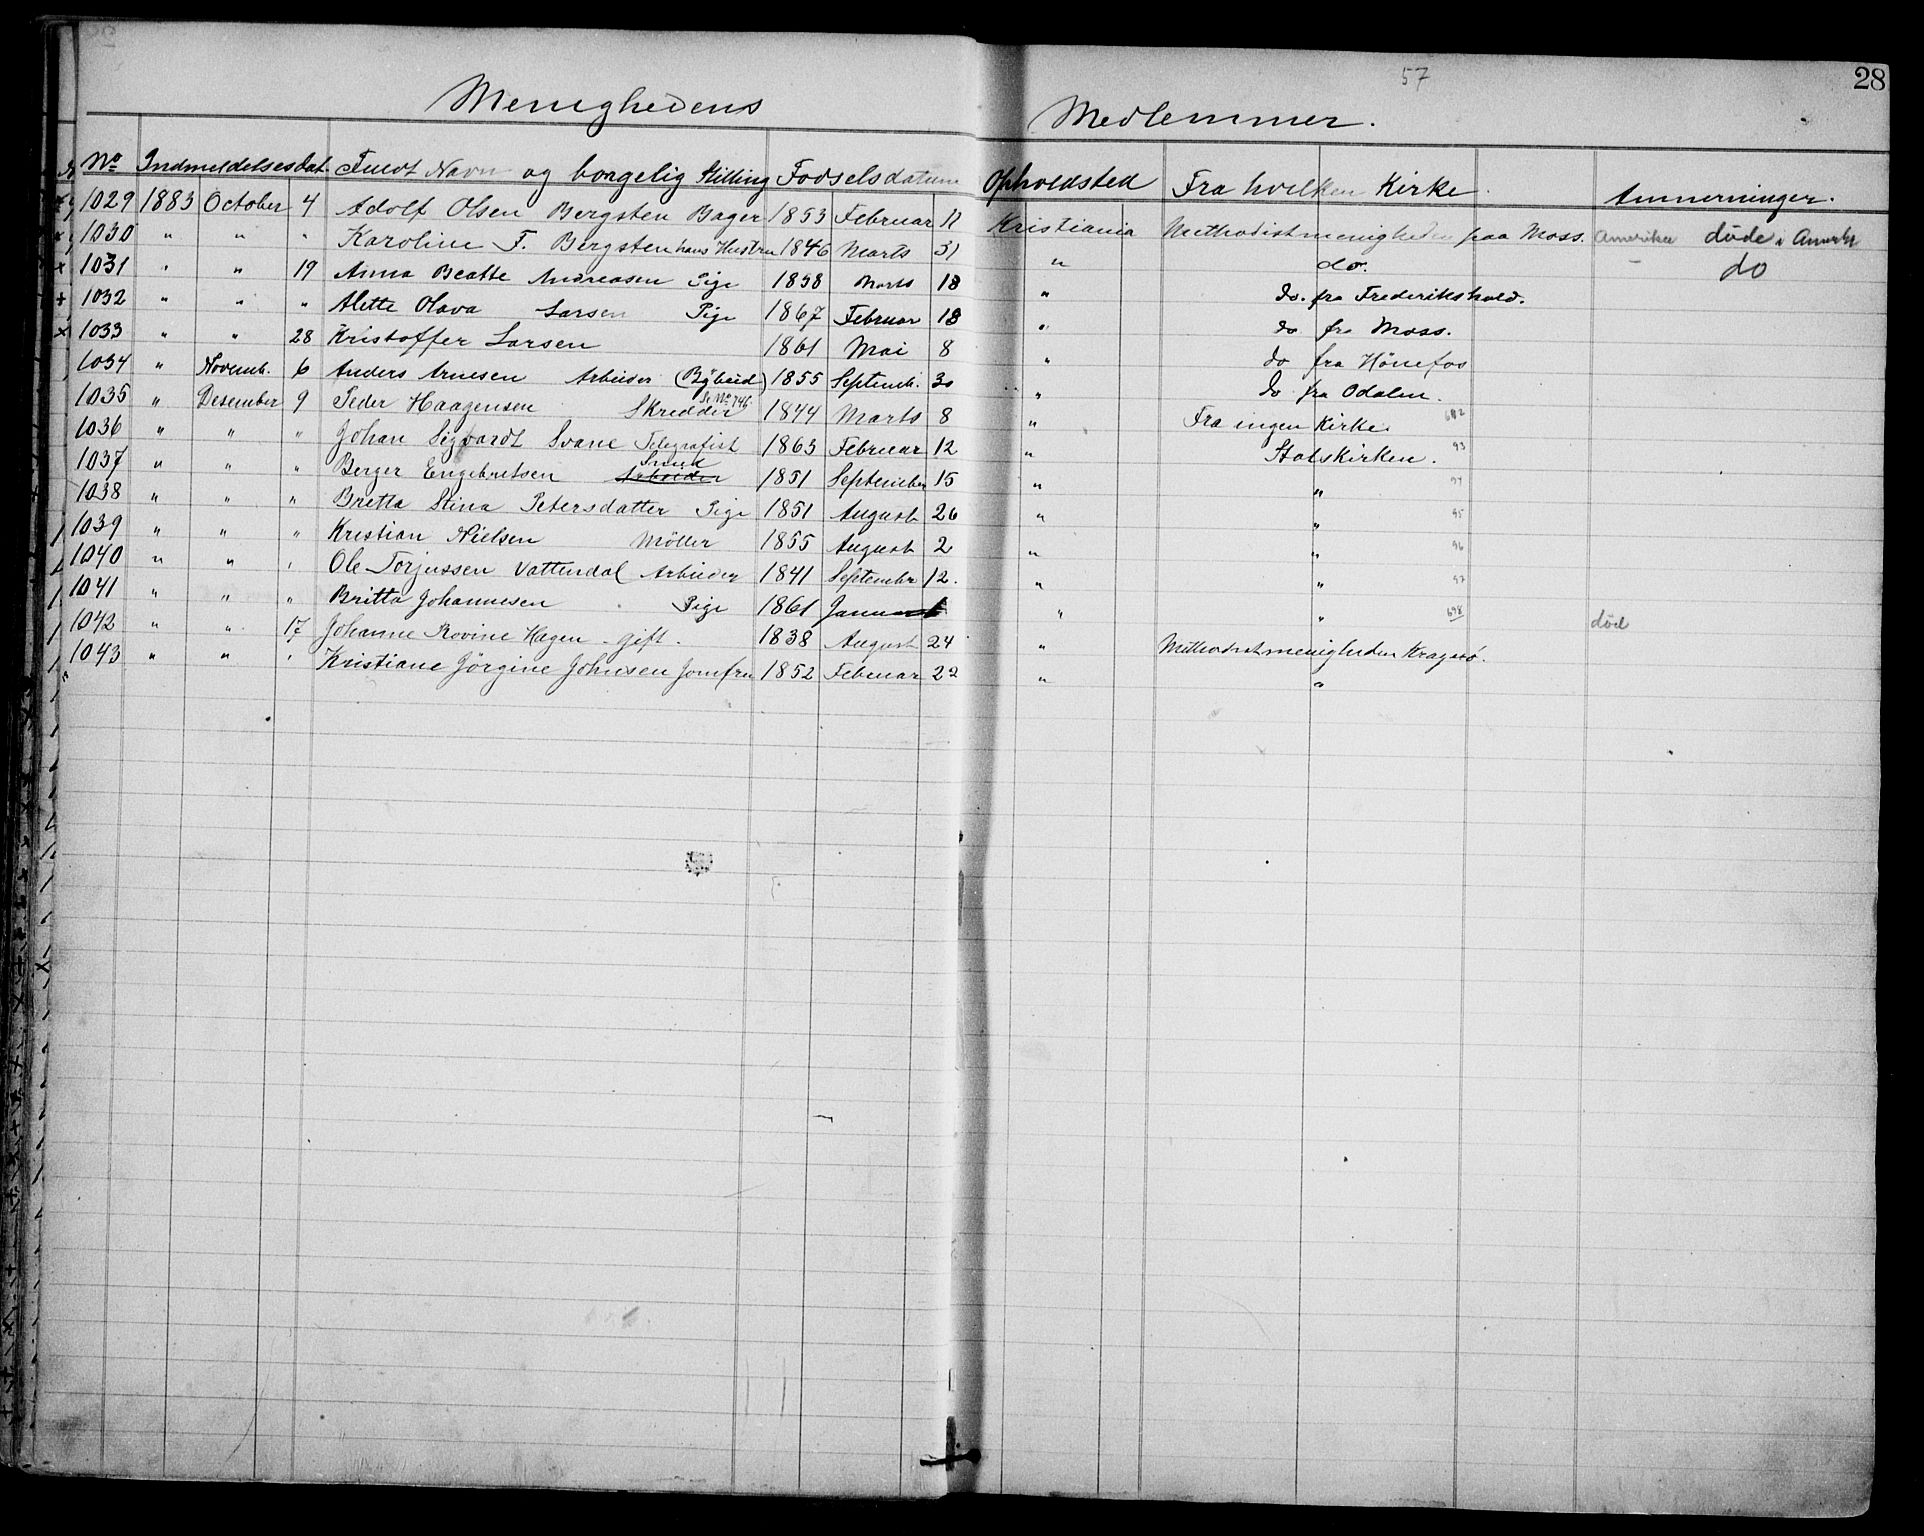 57
28
Menighedens Medlemmer.
No Indmeldelsesdat. Fuldt Navn og borgelig Stilling Fodselsdatum Opholdsted Fra hvilken Kirke. Anmerninger.
1029 1883 October 4 Adolf Olsen Bergsten Bager 1853 Februar 11 Kristiania Methodistmenigheden paa Moss. Amerika døde i Amerk
1030 " " " Karoline F. Bergsten hans Hustru 1846 Marts 31 " do. do
1031 " " 19 Anna Beatte Andreasen Pige 1858 Marts 18 " do. fra Frederikshald.
1032 " " " Alette Olava Larsen Pige 1867 Februar 18 " do fra Moss.
1033 " " 28 Kristoffer Larsen 1861 Mai 8 " do fra Hönefos
1034 " Novemb. 6 Anders Arnesen Arbeider 1855 Septemb. 30 " do fra Odalen.
1035 " Desember 9 Peder Haagensen Skredder Se No 746 1844 Marts 8 " Fra ingen Kirke. 692
1036 " " " Johan Sigvardt Svane Telegrafist 1863 Februar 12 " Statskirken. 93
1037 " " " Berger Engebretsen Smed Arbeider 1851 September 15 " " 94
1038 " " " Bretta Stina Petersdatter Pige 1851 August 26 " " 95
1039 " " " Kristian Nielsen Möller 1855 August 2 " " 96
1040 " " " Ole Torjussen Vattendal Arbeider 1841 Septembr 12. " " 97
1041 " " " Britta Johannesen Pige 1861 Januar " " 698 död
1042 " " 17 Johanne Rovine Hagen - gift. 1838 August 24 " Methodistmenigheden Kragerö.
1043 " " " Kristiane Jörgine Johnsen Jomfru 1852 Februar 22 " "